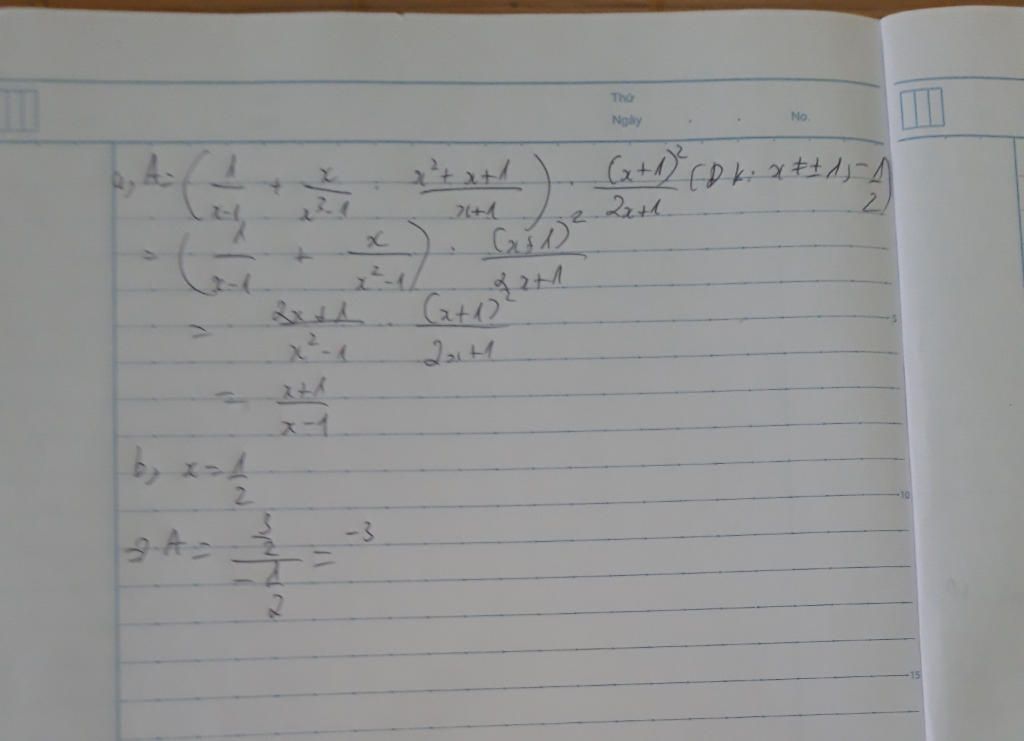 Thứ
Ngày . . No.
a, A = (1/(x-1) + x/(x³-1) . (x²+x+1)/(x+1)) . (x+1)²/(2x+1) (ĐK: x ≠ ±1, -1/2)
= (1/(x-1) + x/(x²-1)) . (x+1)²/(2x+1)
= (2x+1)/(x²-1) (x+1)²/(2x+1)
= (x+1)/(x-1)
5
b, x = 1/2
10
=> A = (3/2)/(-1/2) = -3
15